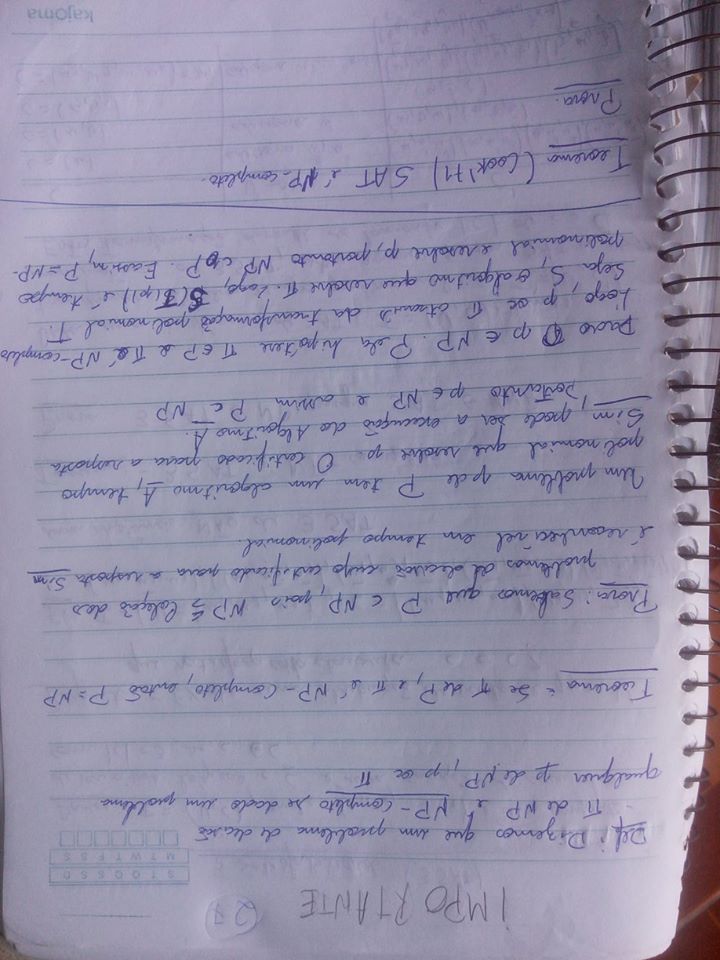 IMPORTANTE 27
S T Q Q S S D
M T W T F S S
Def: Dizemos que um problema de decisão
π de NP é NP-completo se dado um problema
qualquer p de NP, p ∝ π
Teorema: Se π de P, e π é NP-completo, então P=NP
Prova: Sabemos que P ⊂ NP, pois NP é coleção dos
problemas de decisão cujo certificado para a resposta Sim
é reconhecível em tempo polinomial.
Um problema p de P tem um algoritmo A, tempo
polinomial que resolve p. O certificado para a resposta
Sim, pode ser a execução do Algoritmo A.
Portanto p ∈ NP e assim P ⊂ NP
Dado p ∈ NP. Pela hipótese π ∈ P e π é NP-completo
Logo, p ∝ π através da transformação polinomial T.
Seja S, o algoritmo que resolve π. Logo, S(T(p)) é tempo
polinomial e resolve p, portanto NP ⊂ P. E assim, P=NP.
Teorema (Cook'71) SAT é NP-completo.
Prova.
kajoma